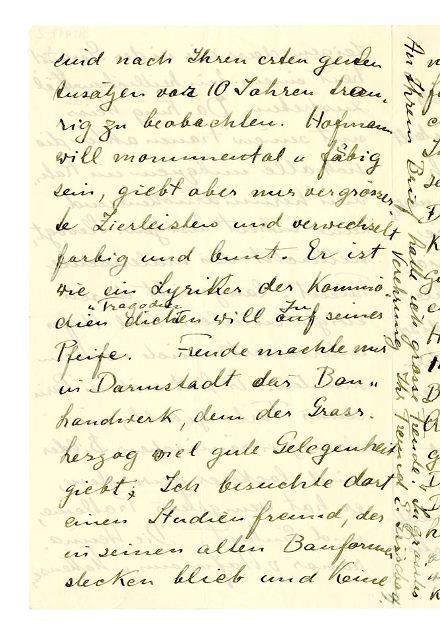 und nach Ihren ersten genden
tusatzen vor 10 Jahren trau-
rig zu beobachten. Hofmann
will monumental u farbig
sein, giebt aber nur vergrösser-
te Zierleisten und verwechselt
farbig und bunt. Er ist
wie ein Lyriker der Kommö-
u. Tragödien
dien dichten will auf seiner
Pfeife. Freude machte mir
in Darmstadt das Bau-
handwerk, dem der Gross-
herzog viel gute Gelegenheit
giebt. Ich besuchte dort
einen Studienfreund, der
in seinen alten Bauformen
stecken blieb und keine
An Ihrem Brief hatte ich grosse Freude. In grösster
Verehrung Ihr Freund E.